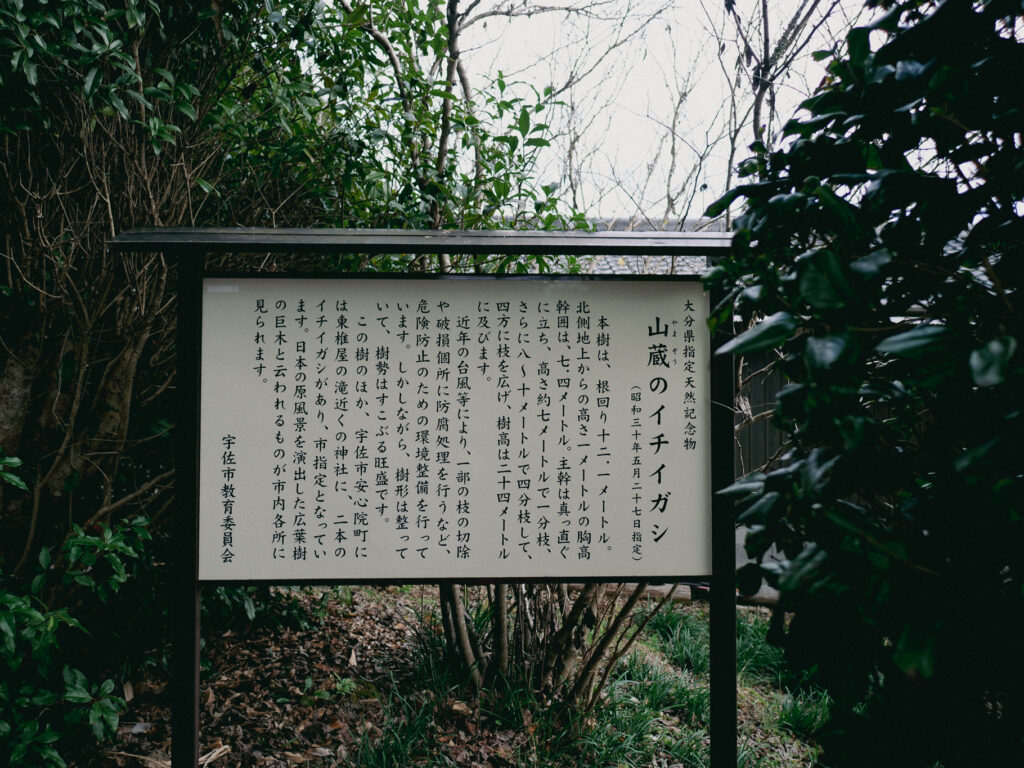 大分県指定天然記念物
やまぞう
山蔵のイチイガシ
（昭和三十年五月二十七日指定）
本樹は、根回り十二．一メートル。
北側地上からの高さ一メートルの胸高
幹囲は、七．四メートル。主幹は真っ直ぐ
に立ち、高さ約七メートルで一分枝、
さらに八～十メートルで四分枝して、
四方に枝を広げ、樹高は二十四メートル
に及びます。
近年の台風等により、一部の枝の切除
や破損個所に防腐処理を行うなど、
危険防止のための環境整備を行って
います。しかしながら、樹形は整って
いて、樹勢はすこぶる旺盛です。
この樹のほか、宇佐市安心院町に
は東椎屋の滝近くの神社に、二本の
イチイガシがあり、市指定となってい
ます。日本の原風景を演出した広葉樹
の巨木と云われるものが市内各所に
見られます。
宇佐市教育委員会